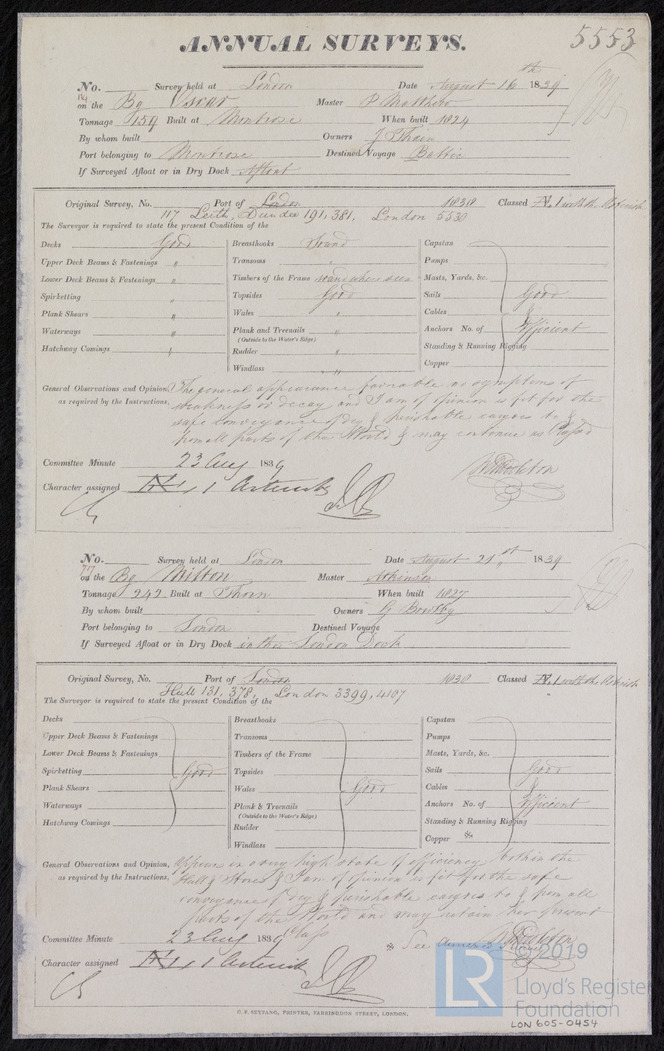 5553
ANNUAL SURVEYS.
No. Survey held at London Date August 16th 1839
on the Bg Oscar Master P Matthew
Tonnage 159 Built at Montrose When built 1824
By whom built Owners J Thain
Port belonging to Montrose Destined Voyage Baltic
If Surveyed Afloat or in Dry Dock Afloat
Original Survey, No. Port of London Classed
117 Leith, Dundee 191, 381, London 5330
The Surveyor is required to state the present Condition of the
Decks Good
Upper Deck Beams & Fastenings "
Lower Deck Beams & Fastenings "
Spirketting "
Plank Shears "
Waterways "
Hatchway Comings "
Breasthooks Sound
Transoms "
Timbers of the Frame Sound where seen
Topsides Good
Wales "
Plank and Treenails "
(Outside to the Water's Edge)
Rudder "
Windlass "
Capstan
Pumps
Masts, Yards, &c.
Sails Good
Cables &
Anchors No. of Efficient
Standing & Running Rigging
Copper
General Observations and Opinion, The general appearance favorable no symptoms of
as required by the Instructions, weakness or decay and I am of opinion is fit for the
safe conveyance of dry & perishable cargoes to &
from all parts of the World & may continue as Classd
Committee Minute 23 Aug 1839
Character assigned
No. Survey held at London Date August 21st 1839
on the Bg Milton Master Atkinson
Tonnage 242 Built at Thorn When built 1827
By whom built Owners G Bowlby
Port belonging to London Destined Voyage
If Surveyed Afloat or in Dry Dock in the London Dock
Original Survey, No. Port of London Classed
Hull 131, 378, London 3399, 4107
The Surveyor is required to state the present Condition of the
Decks
Upper Deck Beams & Fastenings
Lower Deck Beams & Fastenings
Spirketting Good
Plank Shears
Waterways
Hatchway Comings
Breasthooks
Transoms
Timbers of the Frame
Topsides
Wales Good
Plank & Treenails
(Outside to the Water's Edge)
Rudder
Windlass
Capstan
Pumps
Masts, Yards, &c.
Sails Good
Cables &
Anchors No. of Efficient
Standing & Running Rigging
Copper *
General Observations and Opinion, Appears in a very high state of efficiency both in the
as required by the Instructions, Hull & Stores & I am of opinion is fit for the safe
conveyance of dry & perishable cargoes to & from all
parts of the World and may retain her present
Class
Committee Minute 23 Aug 1839
* See
Character assigned
© 2019
LR
Lloyd's Register
Foundation
C. F. SEYFANG, PRINTER, FARRINGDON STREET, LONDON.
LON 605-0454